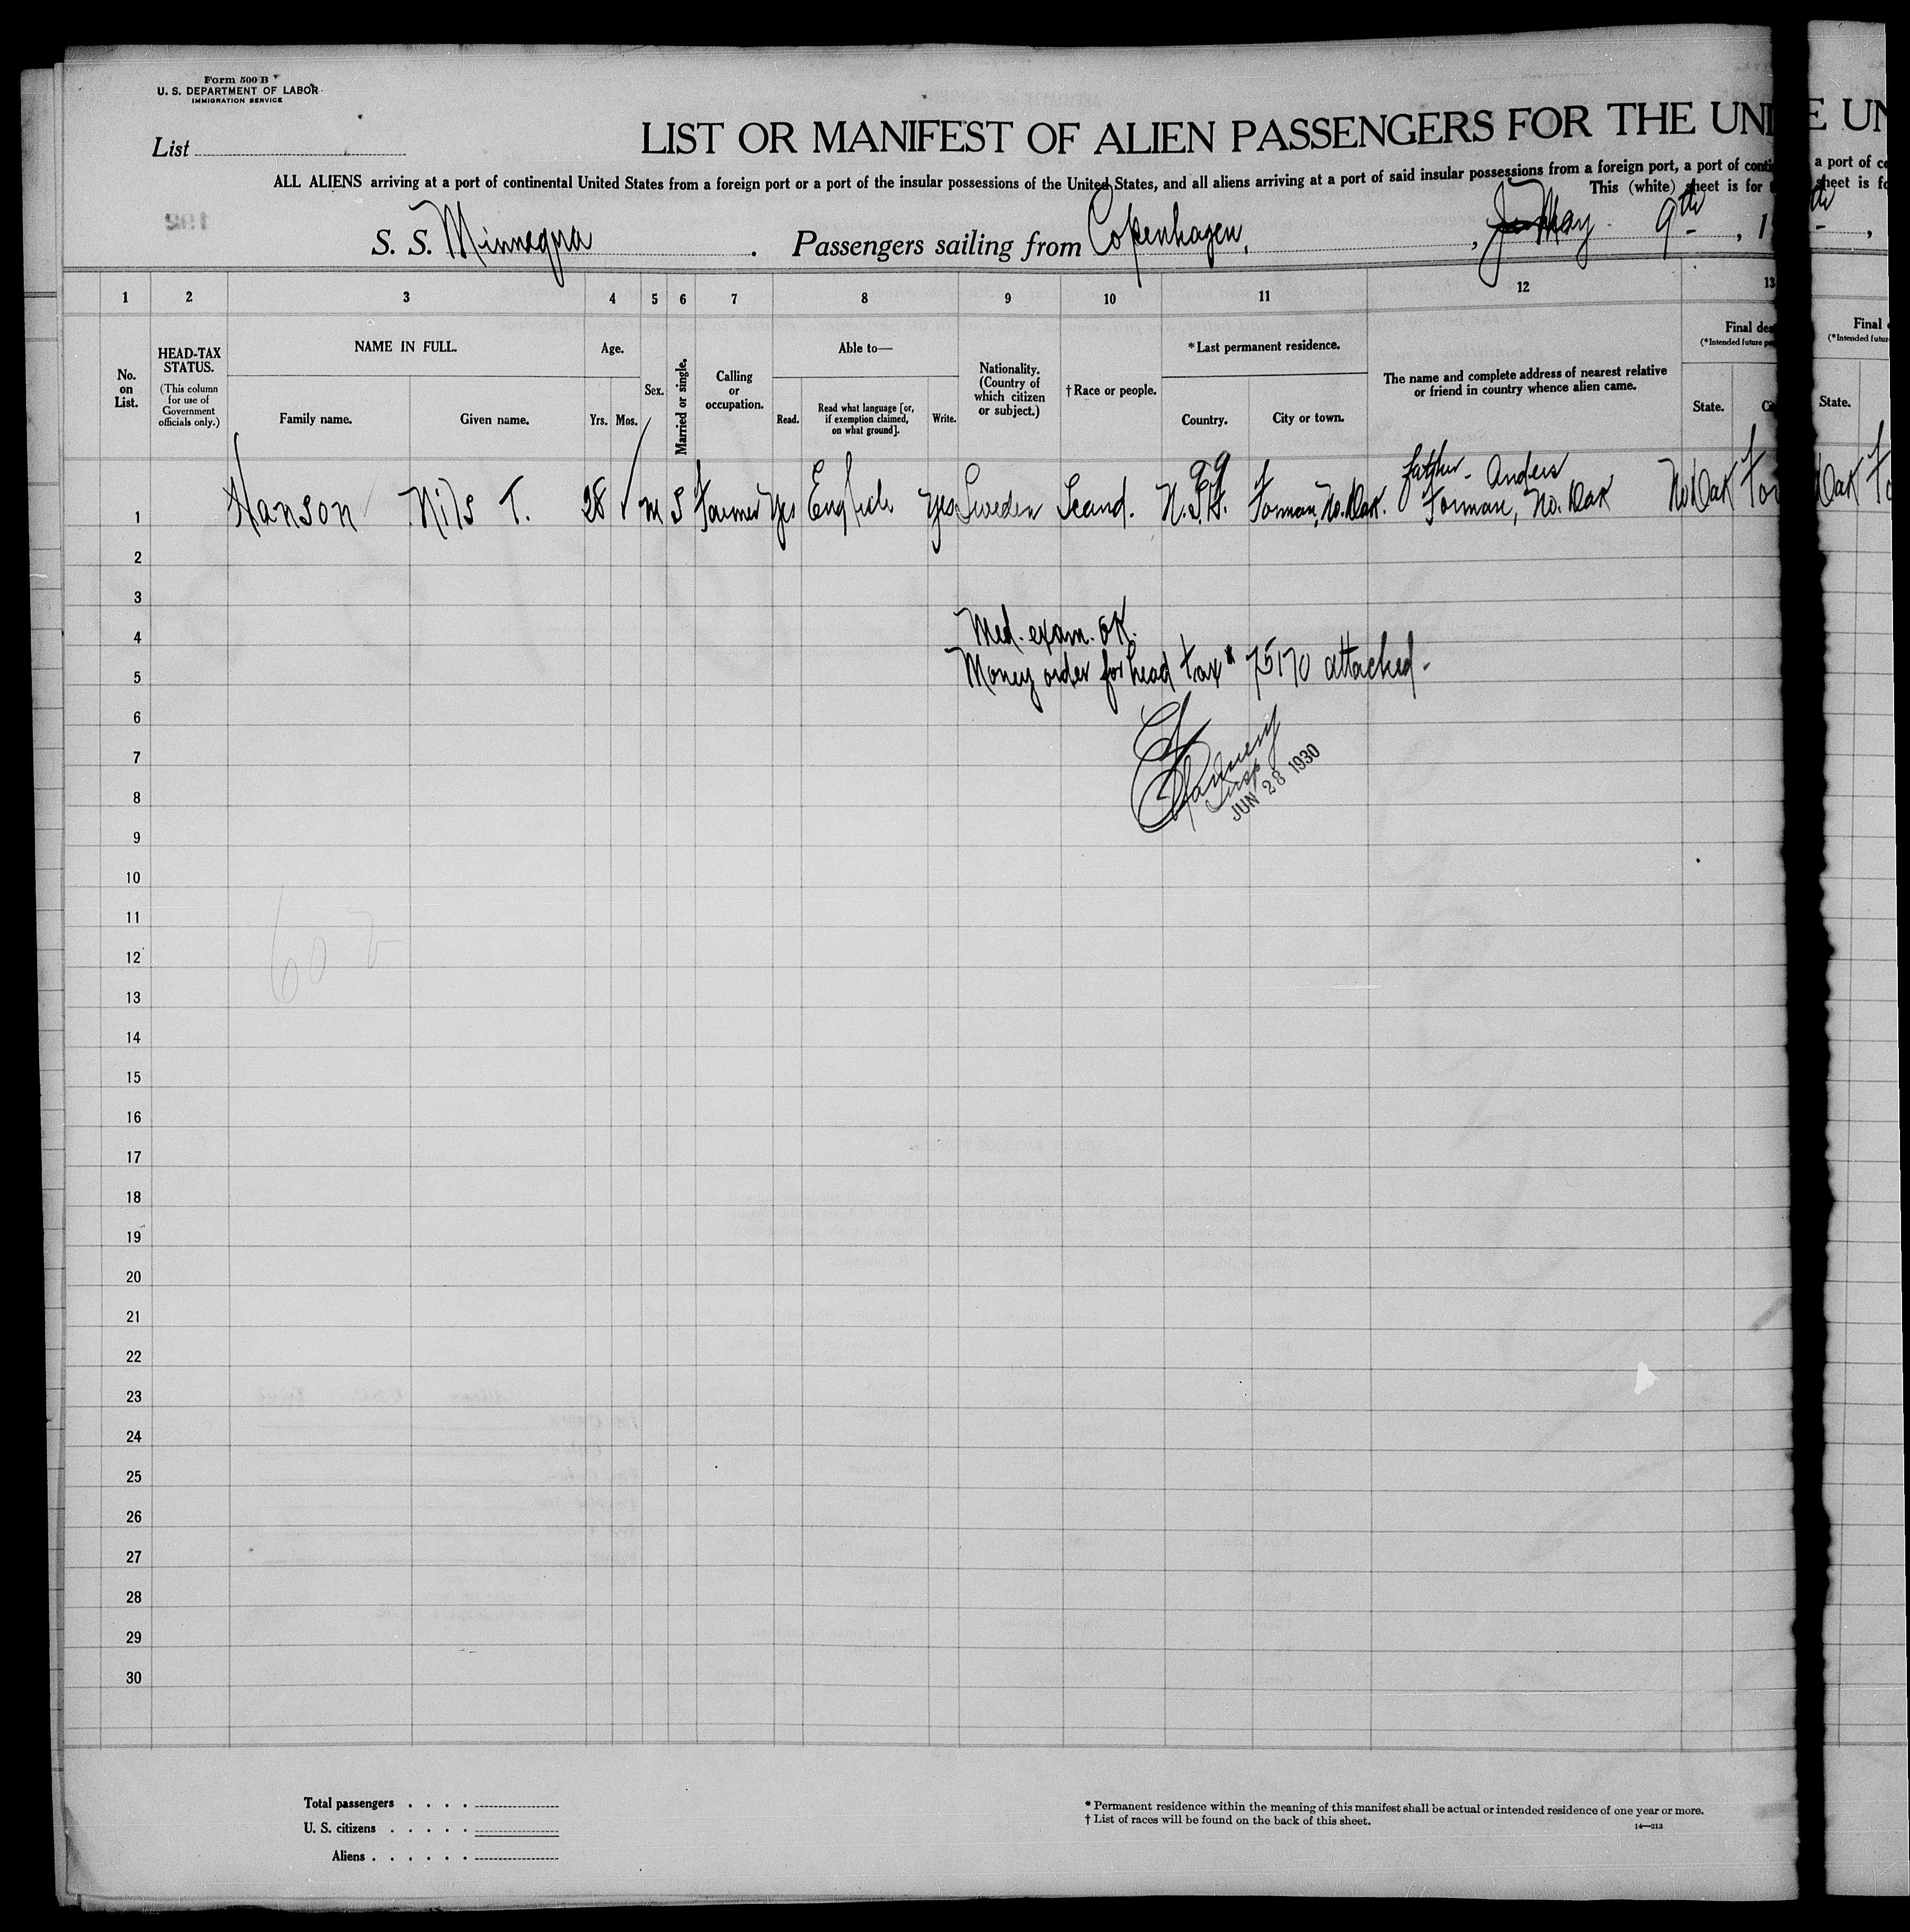 Form 500 B
U. S. DEPARTMENT OF LABOR
IMMIGRATION SERVICE
List
LIST OR MANIFEST OF ALIEN PASSENGERS FOR THE UNI
ALL ALIENS arriving at a port of continental United States from a foreign port or a port of the insular possessions of the United States, and all aliens arriving at a port of said insular possessions from a foreign port, a port of conti
This (white) sheet is for
S. S. Minnequa . Passengers sailing from Copenhagen, , May 9th , 1
1 2 3 4 5 6 7 8 9 10 11 12 13
No. on List.
HEAD-TAX STATUS.
(This column for use of Government officials only.)
NAME IN FULL.
Family name. Given name.
Age.
Yrs. Mos.
Sex.
Married or single.
Calling or occupation.
Able to—
Read. Read what language [or, if exemption claimed, on what ground]. Write.
Nationality. (Country of which citizen or subject.)
† Race or people.
* Last permanent residence.
Country. City or town.
The name and complete address of nearest relative or friend in country whence alien came.
Final des
(*Intended future pe
State. Ci
father - Anders
1 Hanson Nils T. 28 m S Farmer Yes English Yes Sweden Scand. Forman, No. Dak. Forman, No. Dak No Dak For
2
3
Med. exam. OK.
4
Money order for head tax # 75170 attached.
5
6
7
Insp
JUN 28 1930
8
9
10
11
12
13
14
15
16
17
18
19
20
21
22
23
24
25
26
27
28
29
30
Total passengers . . . .
U. S. citizens . . . . .
Aliens . . . . . .
* Permanent residence within the meaning of this manifest shall be actual or intended residence of one year or more.
† List of races will be found on the back of this sheet.
14—213
E UN
a port of co
sheet is fo
th - ,
Final
(*Intended futur
State.
Dak Fo